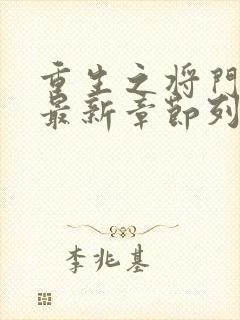 重生之将门
最新章节列
李兆基